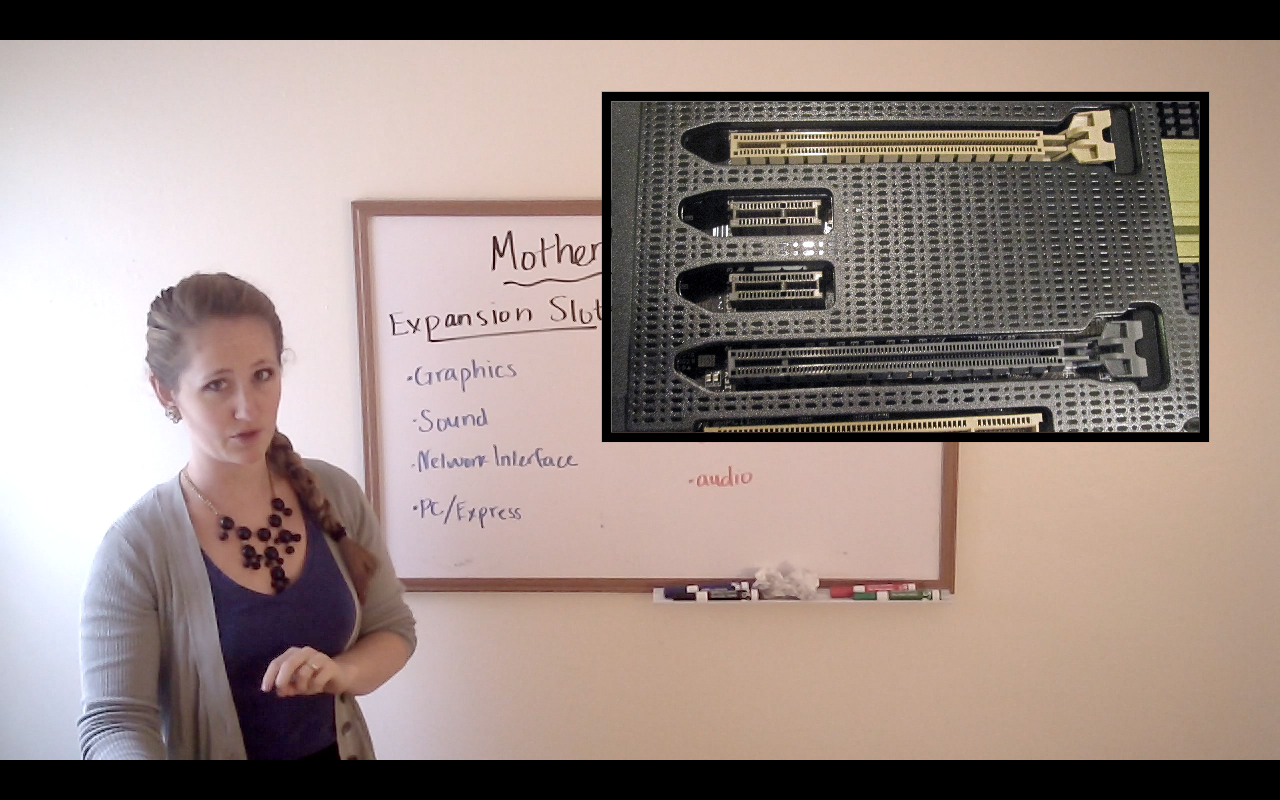 Mother
Expansion Slot
·Graphics
·Sound
·Network Interface
·PC/Express
·audio